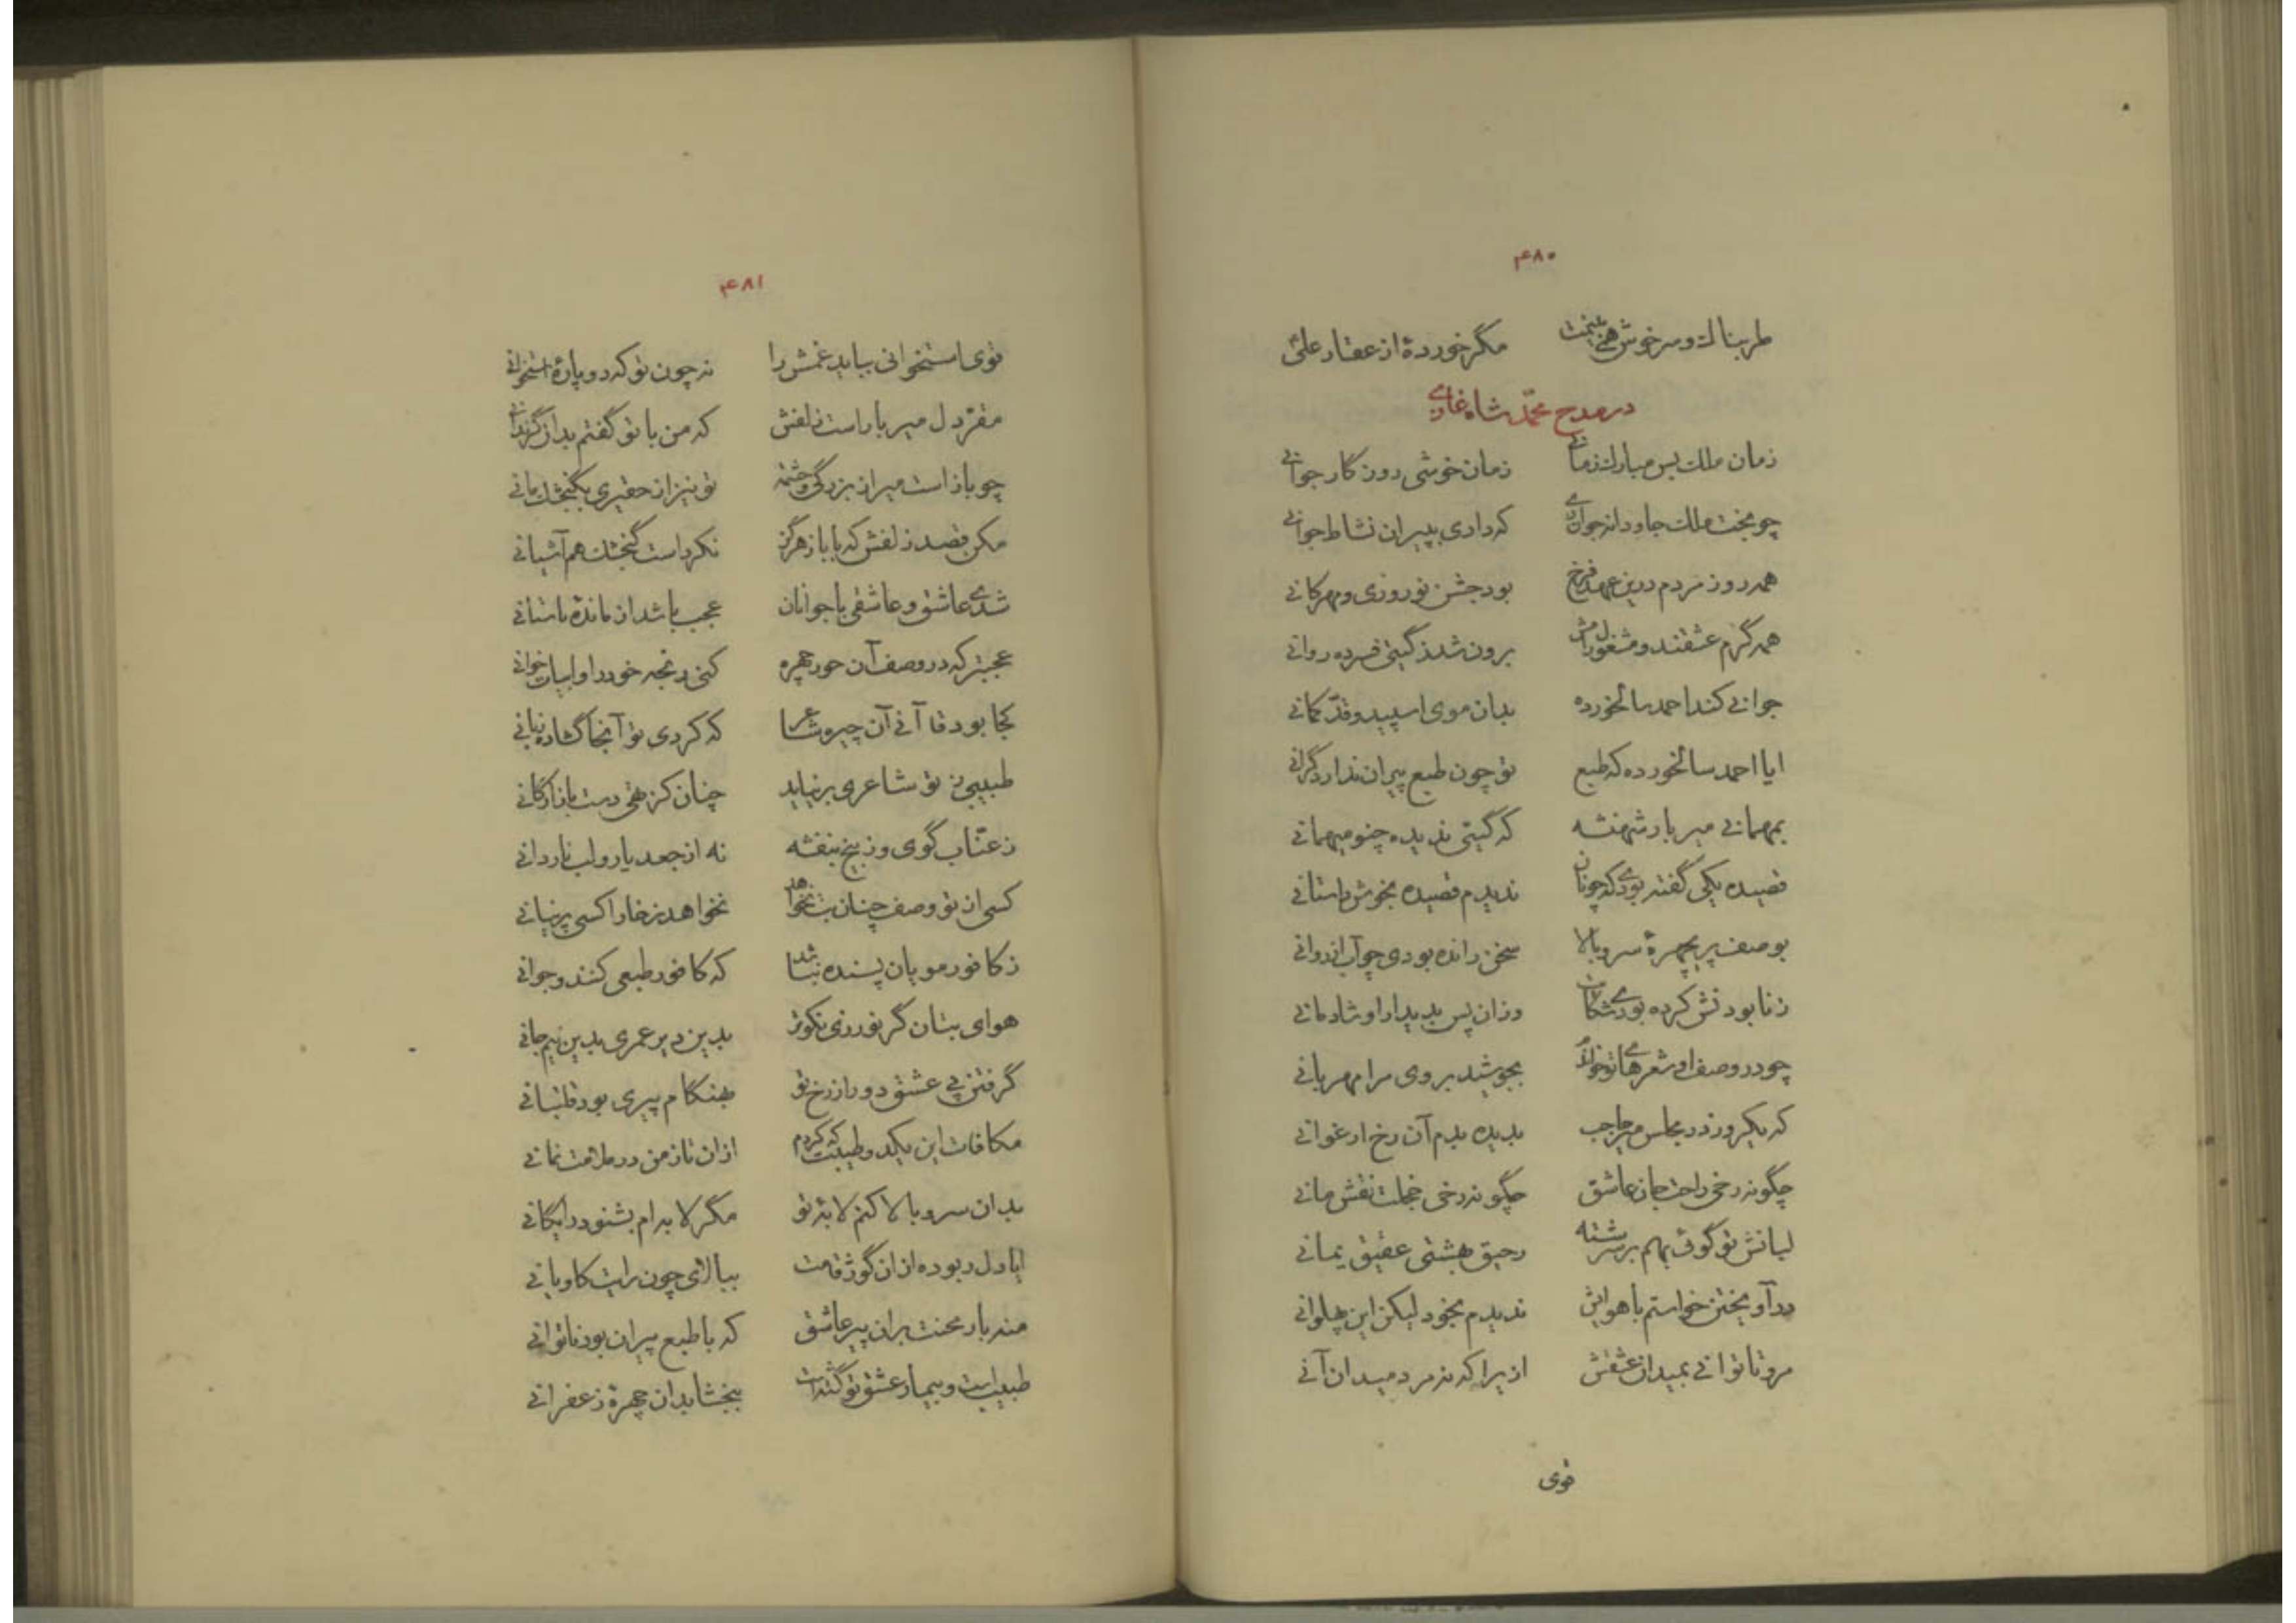 ۴۸۰
طربناک و سرخوش همی بینمت مگر خوردهٔ از عقار علی
در مدح محمّد شاه غازی
زمان ملک بس مبارک زمانی زمان خوشی روزگار جوانی
چو بخت ملک جاودانه جوان که دادی بپیران نشاط جوانی
همه روز مردم درین عهد فرخ بود جشن نوروزی و مهرکانی
همه گرم عشقند و مشغول برون شد ز گیتی فسرده روانی
جوانی کند احمد سالخورده بدان موی اسپید و قدّ کمانی
ایا احمد سالخورده که طبع تو چون طبع پیران ندارد گرانی
بمهمانی میر بار شهنشه که گیتی ندیده چنو میهمانی
قصیده یکی گفته بودی که چونان ندیدم قصیده بخوش داستانی
بوصف پریچهرهٔ سرو بالا سخن رانده بودی چو آب از روانی
ز نابودنش کرده بودی شکایت وزان پس بدیدار او شادمانی
چو در وصف او شعرهای تو خواندم بجوشید بر وی مرا مهربانی
که یکروز در مجلس میر حاجب بدیده بدم آن رخ ارغوانی
چگونه رخی راحت جان عاشق چگونه رخی خجلت نقش مانی
لبانش تو گوئی بهم بر سرشته رحیق بهشتی عقیق یمانی
در آویختن خواستم با هوایش ندیدم بخود لیکن این پهلوانی
مرو تا توانی بمیدان عشقش ازیرا که نه مرد میدان آنی
قوی
۴۸۱
قوی استخوانی بباید غمش را نه چون تو که دو پارهٔ استخوانی
مقرّ دل میر بار است زلفش که من با تو گفتم بد از
چو باز است میر از بزرگی و حشمه تو نیز از حقیری بگنجشک مانی
مکن قصد زلفش که با باز هرگز نکرد است گنجشک هم آشیانی
شدی عاشق و عاشقی با جوانان عجب باشد از ماندهٔ باستانی
عجبتر که در وصف آن حور چهره کنی رنجه خود را و ابیات خوانی
کجا بود قاآنی آن چیره شاعر که کردی تو آنجا گشاده زبانی
طبیبی ز تو شاعری بر نیاید چنان کز تهی دست بازارگانی
ز عنّاب گوی و ز بیخ بنفشه نه از جعد یار و لب ناردانی
کسی از تو وصف چنان بت نخواهد نخواهد ز خارا کسی پرنیانی
ز کافور مویان پسنده نباشد که کافور طبعی کنند و جوانی
هوای بتان گر نورزی نکوتر بدین دیر عمری بدین نیم جانی
گرفتن پی عشق دور از رخ تو بهنگام پیری بود قلتبانی
مکافات این یکدو طیبت که کردم ازان تا ز من در ملامت نمانی
بدان سرو بالا کنم لابهٔ تو مگر لابه ام بشنود رایگانی
ایا دل ربوده ازان گوژ قامت ببالای چون رایت کاویانی
منه بار محنت بران پیر عاشق که با طبع پیران بود ناتوانی
طبیب است و بیمار عشق تو گشته است ببخشا بدان چهرهٔ زعفرانی